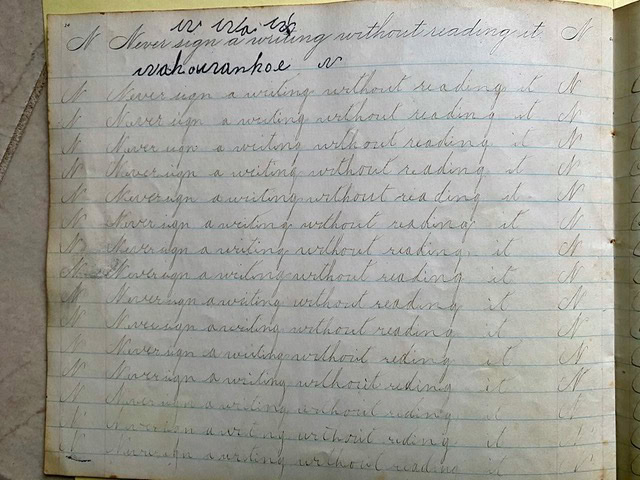 N Never sign a writing without reading it. N
N Never sign a writing without reading it N
N Never sign a writing without reading it N
N Never sign a writing without reading it N
N Never sign a writing without reading it N
N Never sign a writing without reading it N
N Never sign a writing without reading it N
N Never sign a writing without reading it N
N Never sign a writing without reading it N
N Never sign a writing without reading it N
N Never sign a writing without reading it N
Never sign a writing without reding it N
N Never sign a writing without reding it N
N Never sign a writing without reding it N
N Never sign a writing without reding it N
N Never sign a writing without reading it N